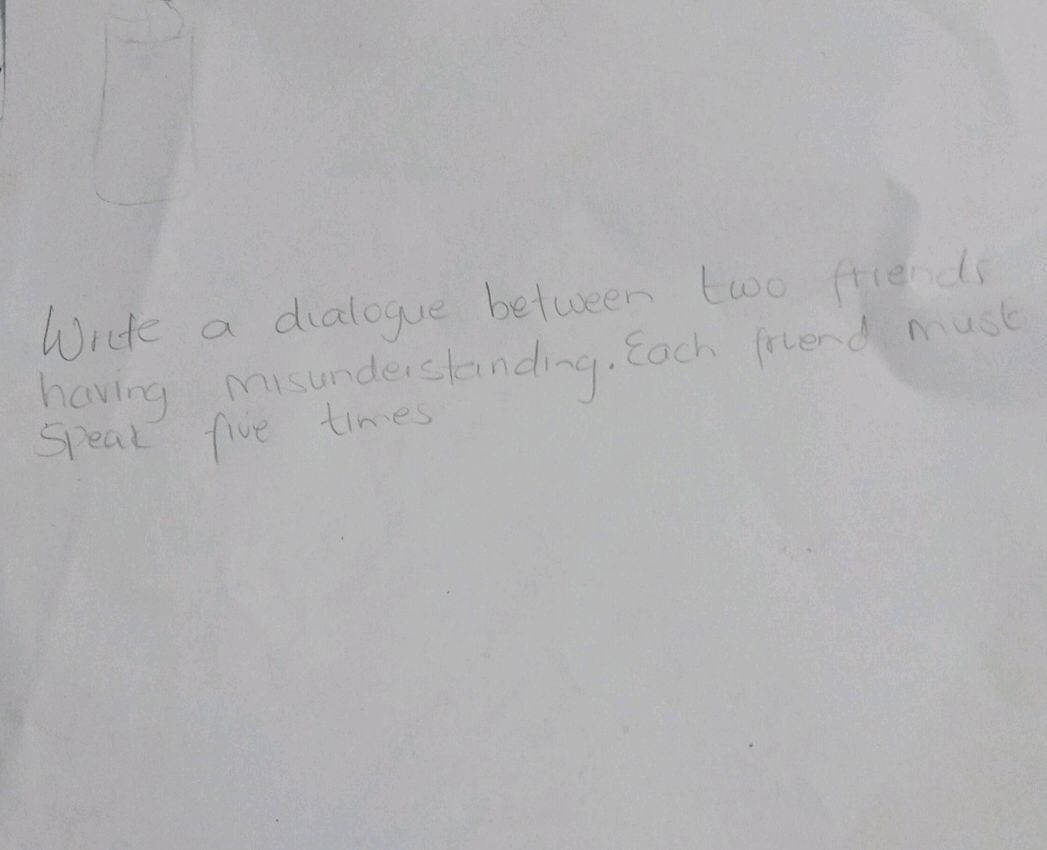 Write a dialogue between two friends
having misunderstanding. Each friend must
Speak five times